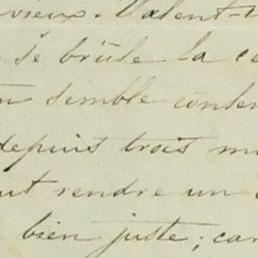 vieux. Valent-
se brûle la ce
semble conten
depuis trois m
ut rendre un
bien juste; car